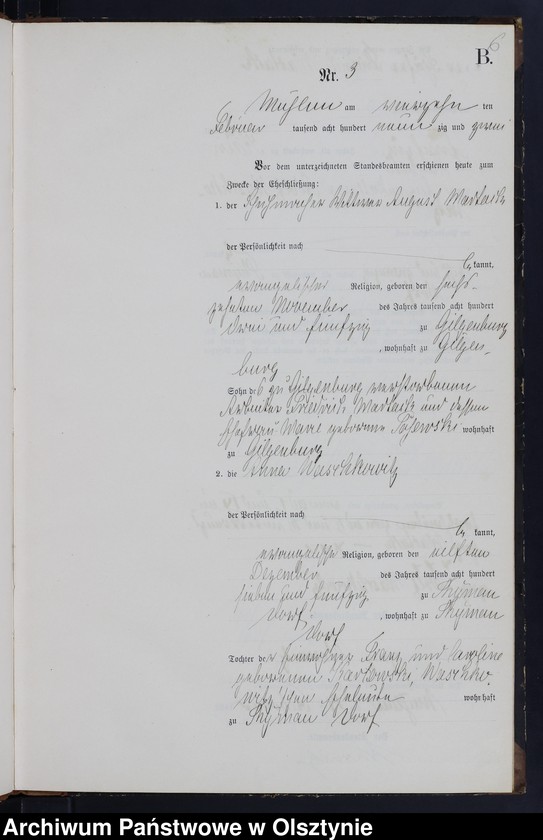 6
B.
Nr. 3
Mühlen am vierzehn ten
Februar tausend acht hundert neun zig und zwei
Vor dem unterzeichneten Standesbeamten erschienen heute zum
Zwecke der Eheschließung:
1. der Wittwer August
der Persönlichkeit nach
kannt,
evangelischer Religion, geboren den sechs-
zehnten November des Jahres tausend acht hundert
drei und fünfzig zu Gilgenburg
, wohnhaft zu Gilgen-
burg
Sohn des zu Gilgenburg verstorbenen
Arbeiter Friedrich und dessen
Ehefrau geborene wohnhaft
zu Gilgenburg
2. die Anna
der Persönlichkeit nach
kannt,
evangelische Religion, geboren den eilften
Dezember des Jahres tausend acht hundert
sieben und fünfzig zu Thyman
dorf , wohnhaft zu Thyman
dorf
Tochter der Einwohner Franz und
geborenen
Eheleute wohnhaft
zu Thyman dorf
Archiwum Państwowe w Olsztynie